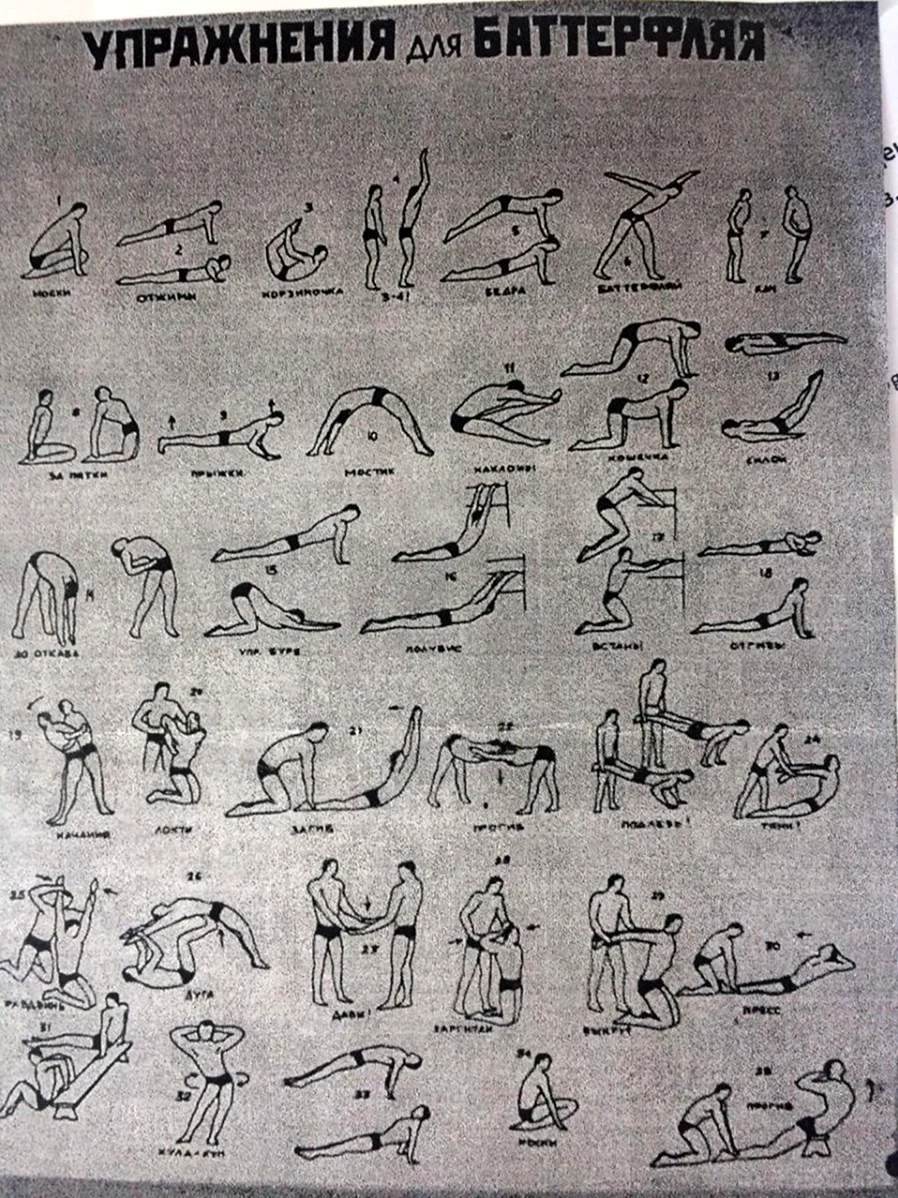 УПРАЖНЕНИЯ для БАТТЕРФЛЯЯ
1 2 3 4 5 6 7
НОСКИ ОТЖИМЫ КОРЗИНОЧКА 3-4! БЕДРА БАТТЕРФЛЯЙ КАЧ
8 9 10 11 12 13
ЗА ПЯТКИ ПРЫЖКИ МОСТИК НАКЛОНЫ КОШЕЧКА СИЛОЙ
14 15 16 17 18
ДО ОТКАЗА УПР. БУРЕ ПОЛУВИС ВСТАНЬ! ОТГИБЫ
19 20 21 22 24
КАЧАНИЯ ЛОКТИ ЗАГИБ ПРОГИБ ПОДЛЕЗЬ! ТЯНИ!
25 26 27 28 29 30
РАЗДВИНЬ ДУГА ДАВИ! ВЫКРУТ ПРЕСС
31 32 33 34 35
ХУЛА-ХУП НОСКИ ПРОГИБ